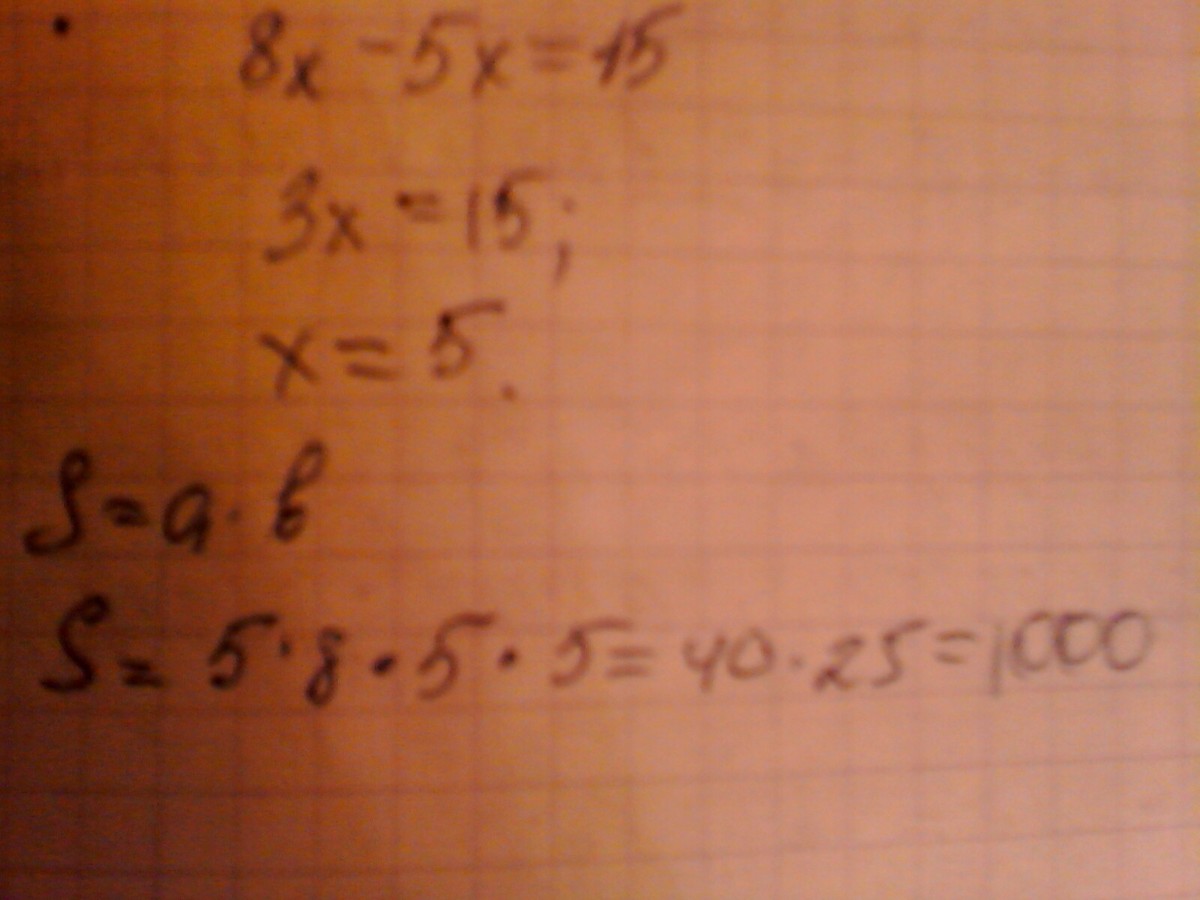 8x - 5x = 15
3x = 15;
x = 5.
S = a · b
S = 5 · 8 · 5 · 5 = 40 · 25 = 1000